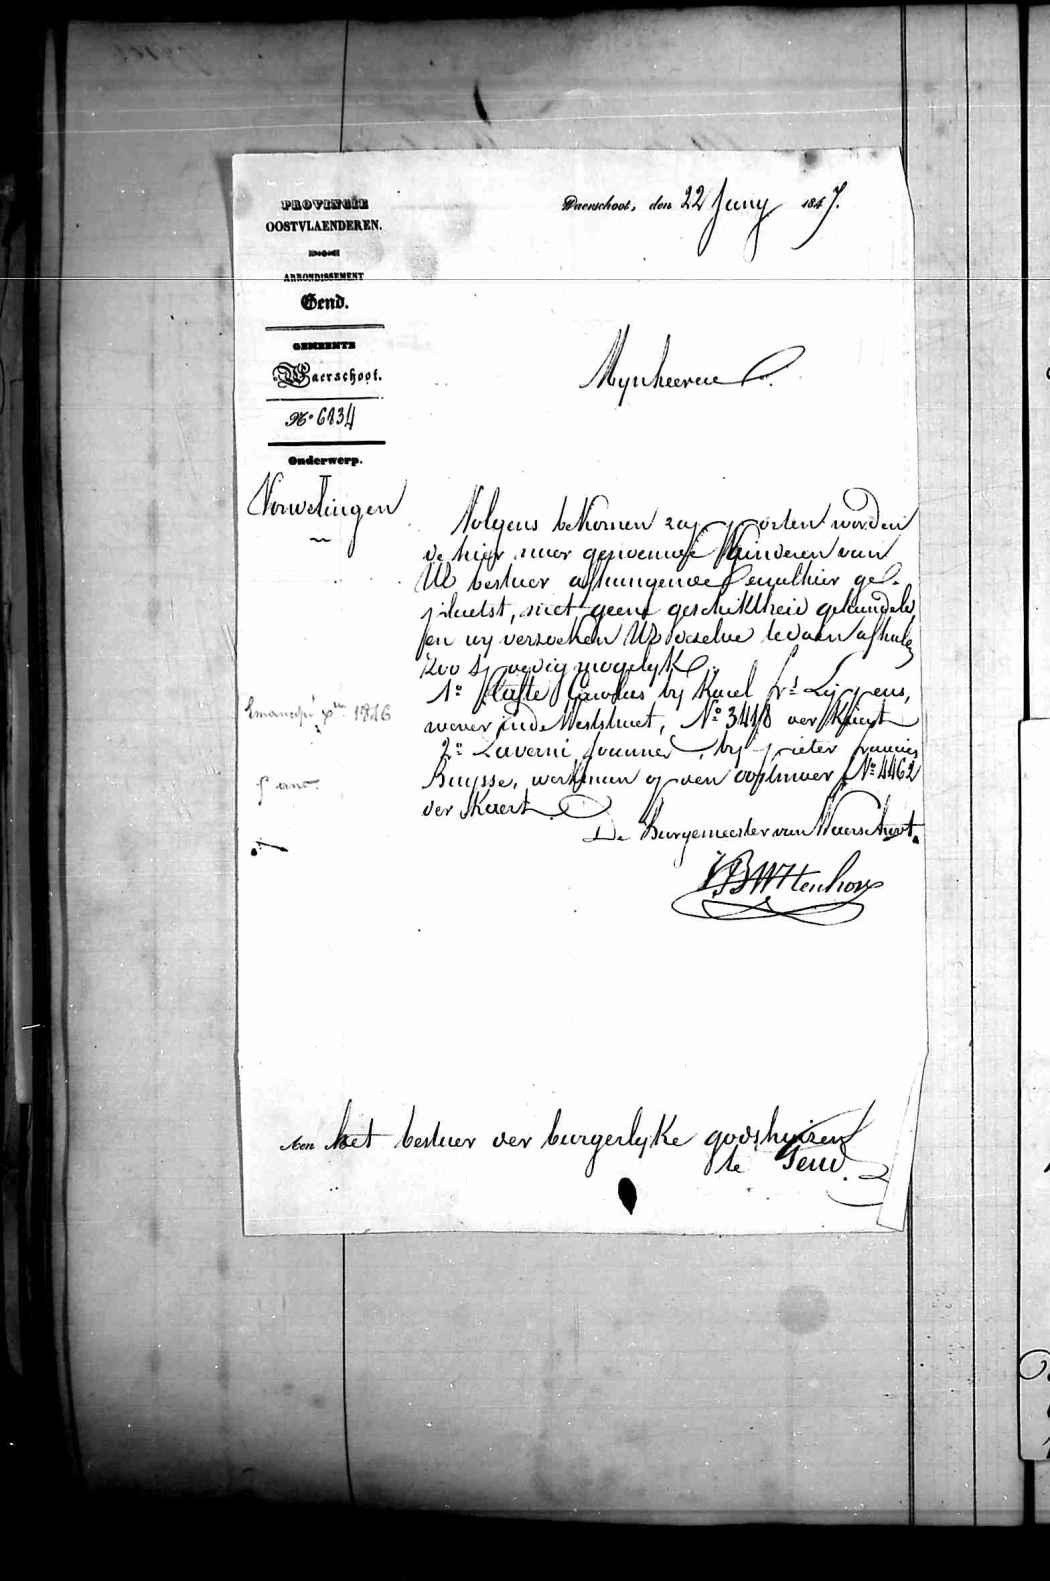 PROVINCIE
OOSTVLAENDEREN.
ARRONDISSEMENT
Gend.
GEMEENTE
Waerschoot.
No 6134
Onderwerp.
Waerschoot, den 22 Juny 1847.
Mynheeren
Volgens bekomen rapporten worden
de hier naer genoemde kinderen van
UE bestuer afhangende alhier ge-
plaetst, met geene geschiktheid gehandeld
en wy verzoeken UE dezelve te doen afhalen
zoo spoedig mogelyk.
1o Carolus by Karel Frs Lippens,
wever in de Weststraet, No 3418 der Kaert
2o Laverni Joannes, by pieter francies
Buysse, werkman op den oostmoer No 4462
der Kaert
De Burgemeester van Waerschoot.
Aen het bestuer der burgerlyke godshuizen
te Gend.
1846